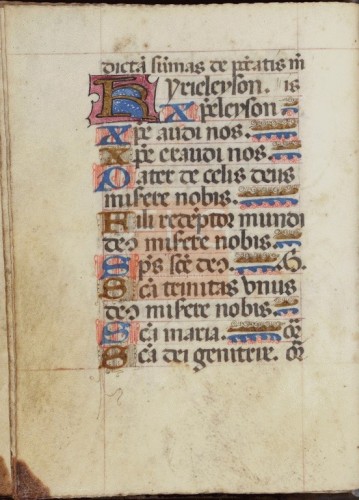 dictā sūmas de pctatis m̄
Kyrieleyson. is
Xp̄eleyson
Xp̄e audi nos.
Xp̄e exaudi nos.
Pater de celis deus
miserere nobis.
Fili redēptor mundi
deꝰ miserere nobis.
Sp̄s sc̄e deꝰ. G.
Sc̄a trinitas vnus
deꝰ miserere nobis.
Sc̄a maria. or̄
Sc̄a dei genitrix. or̄